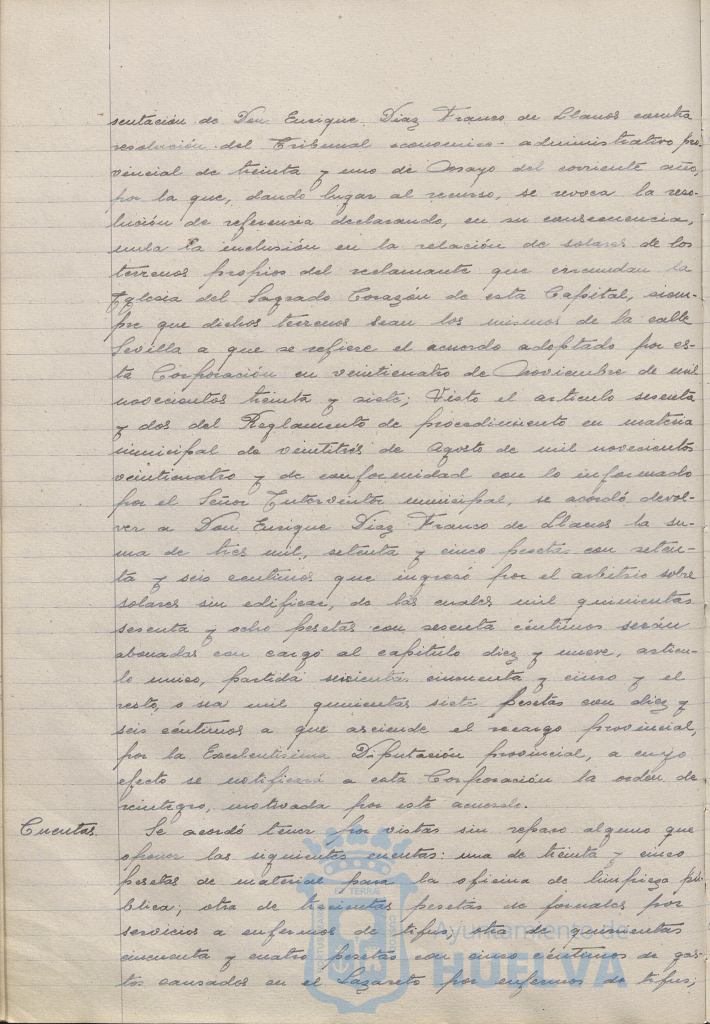 sentación de Don Enrique Diaz Franco de Llanos contra
resolución del Tribunal economico-administrativo pro-
vincial de treinta y uno de Mayo del corriente año,
por la que, dando lugar al recurso, se revoca la reso-
lución de referencia declarando, en su consecuencia,
nula la inclusión en la relación de solares de los
terrenos propios del reclamante que circundan la
Iglesia del Sagrado Corazón de esta Capital, siem-
pre que dichos terrenos sean los mismos de la calle
Sevilla a que se refiere el acuerdo adoptado por es-
ta Corporación en veinticuatro de Noviembre de mil
novecientos treinta y siete; Visto el articulo sesenta
y dos del Reglamento de procedimiento en materia
municipal de veintitrés de Agosto de mil novecientos
veinticuatro y de conformidad con lo informado
por el Señor Interventor municipal, se acordó devol-
ver a Don Enrique Diaz Franco de Llanos la su-
ma de tres mil, setenta y cinco pesetas con seten-
ta y seis centimos que ingresó por el arbitrio sobre
solares sin edificar, de las cuales mil quinientas
sesenta y ocho pesetas con sesenta céntimos serán
abonadas con cargo al capitulo diez y nueve, articu-
lo unico, partida seiscientas cincuenta y cinco y el
resto, o sea mil quinientas siete pesetas con diez y
seis céntimos a que asciende el recargo provincial,
por la Excelentisima Diputación provincial, a cuyo
efecto se notificará a esta Corporación la orden de
reintegro, motivada por este acuerdo.
Cuentas. Se acordó tener por vistas sin reparo alguno que
oponer las siguientes cuentas: una de treinta y cinco
pesetas de material para la oficina de limpieza pú-
blica; otra de trescientas pesetas de jornales por
servicios a enfermos de tifus; otra de quinientas
cincuenta y cuatro pesetas con cinco céntimos de gas-
tos causados en el Lazareto por enfermos de tifus;
Ayuntamiento de
HUELVA